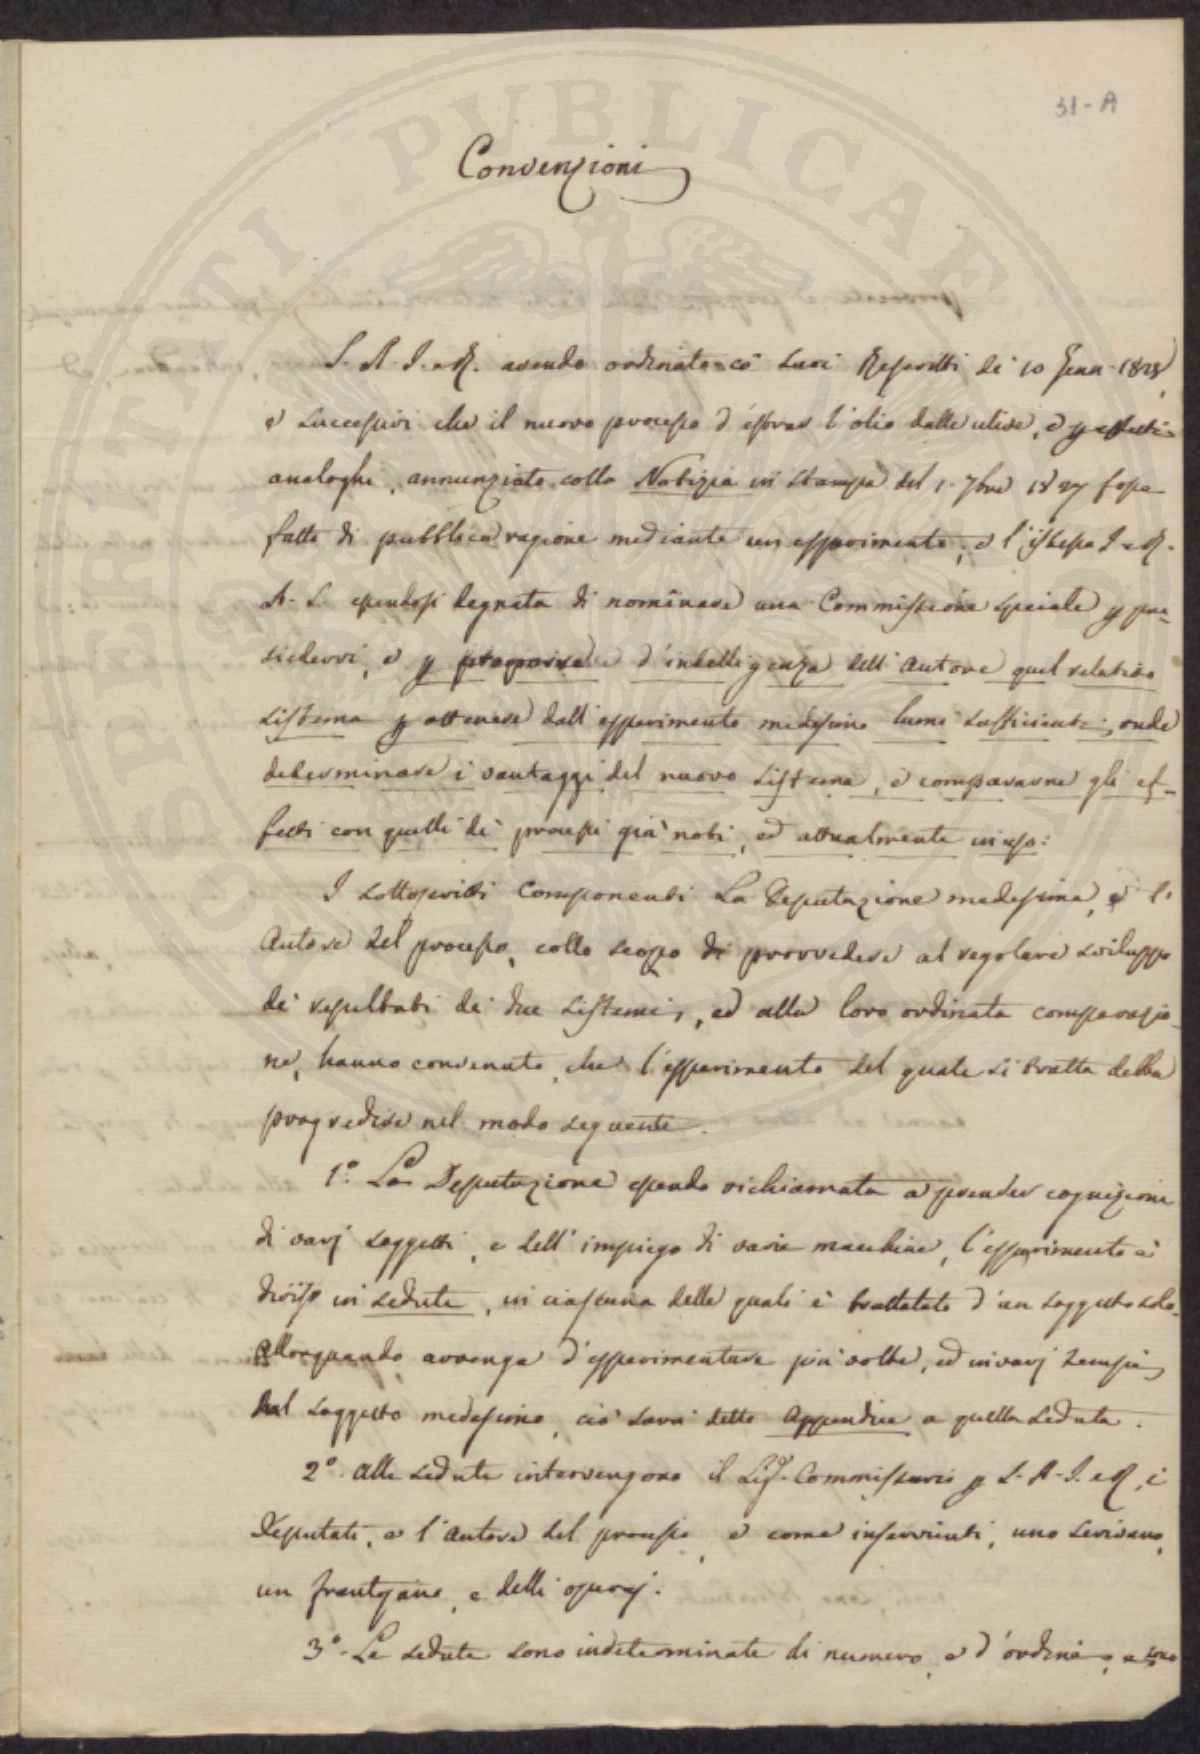 31-A
Convenzioni
S. A. I. e R. avendo ordinato co' suoi Rescritti de' 10 Genn. 1828
e successivi che il nuovo processo d'estrar l'olio dalle ulive, e
analoghi, annunziato colla Notizia in stampa del 1. 7bre 1827 fosse
fatto di pubblica ragione mediante un esperimento, e l'istessa I. e R.
A. S. essendosi degnata di nominare una Commissione speciale p pre-
siedervi, e p proporre d'intelligenza dell'Autore quel relativo
sistema p ottenere dall'esperimento medesimo lumi sufficienti, onde
determinare i vantaggi del nuovo sistema, e compararne gli ef-
fetti con quelli de' processi già noti, ed attualmente in uso:
I sottoscritti Componenti La Deputazione medesima, e l'
Autore del processo, collo scopo di provvedere al regolare sviluppo
de' resultati dei due sistemi, ed alla loro ordinata comparazio-
ne, hanno convenuto, che l'esperimento del quale si tratta debba
progredire nel modo seguente.
1.º La Deputazione essendo richiamata a prender cognizione
di varj soggetti, e dell'impiego di varie macchine, l'esperimento è
diviso in sedute, in ciascuna delle quali è trattato d'un soggetto solo.
Allorquando avvenga d'esperimentare più volte, ed in varj tempi
sul soggetto medesimo, ciò sarà detto Appendice a quella seduta.
2.º Alle sedute intervengono il Sig. Commissario p S. A. I. e R., i
Deputati, e l'Autore del processo, e come inservienti, uno scrivano,
un frantojano, e delli operaj.
3.º Le sedute sono indeterminate di numero, e d'ordine, e sono